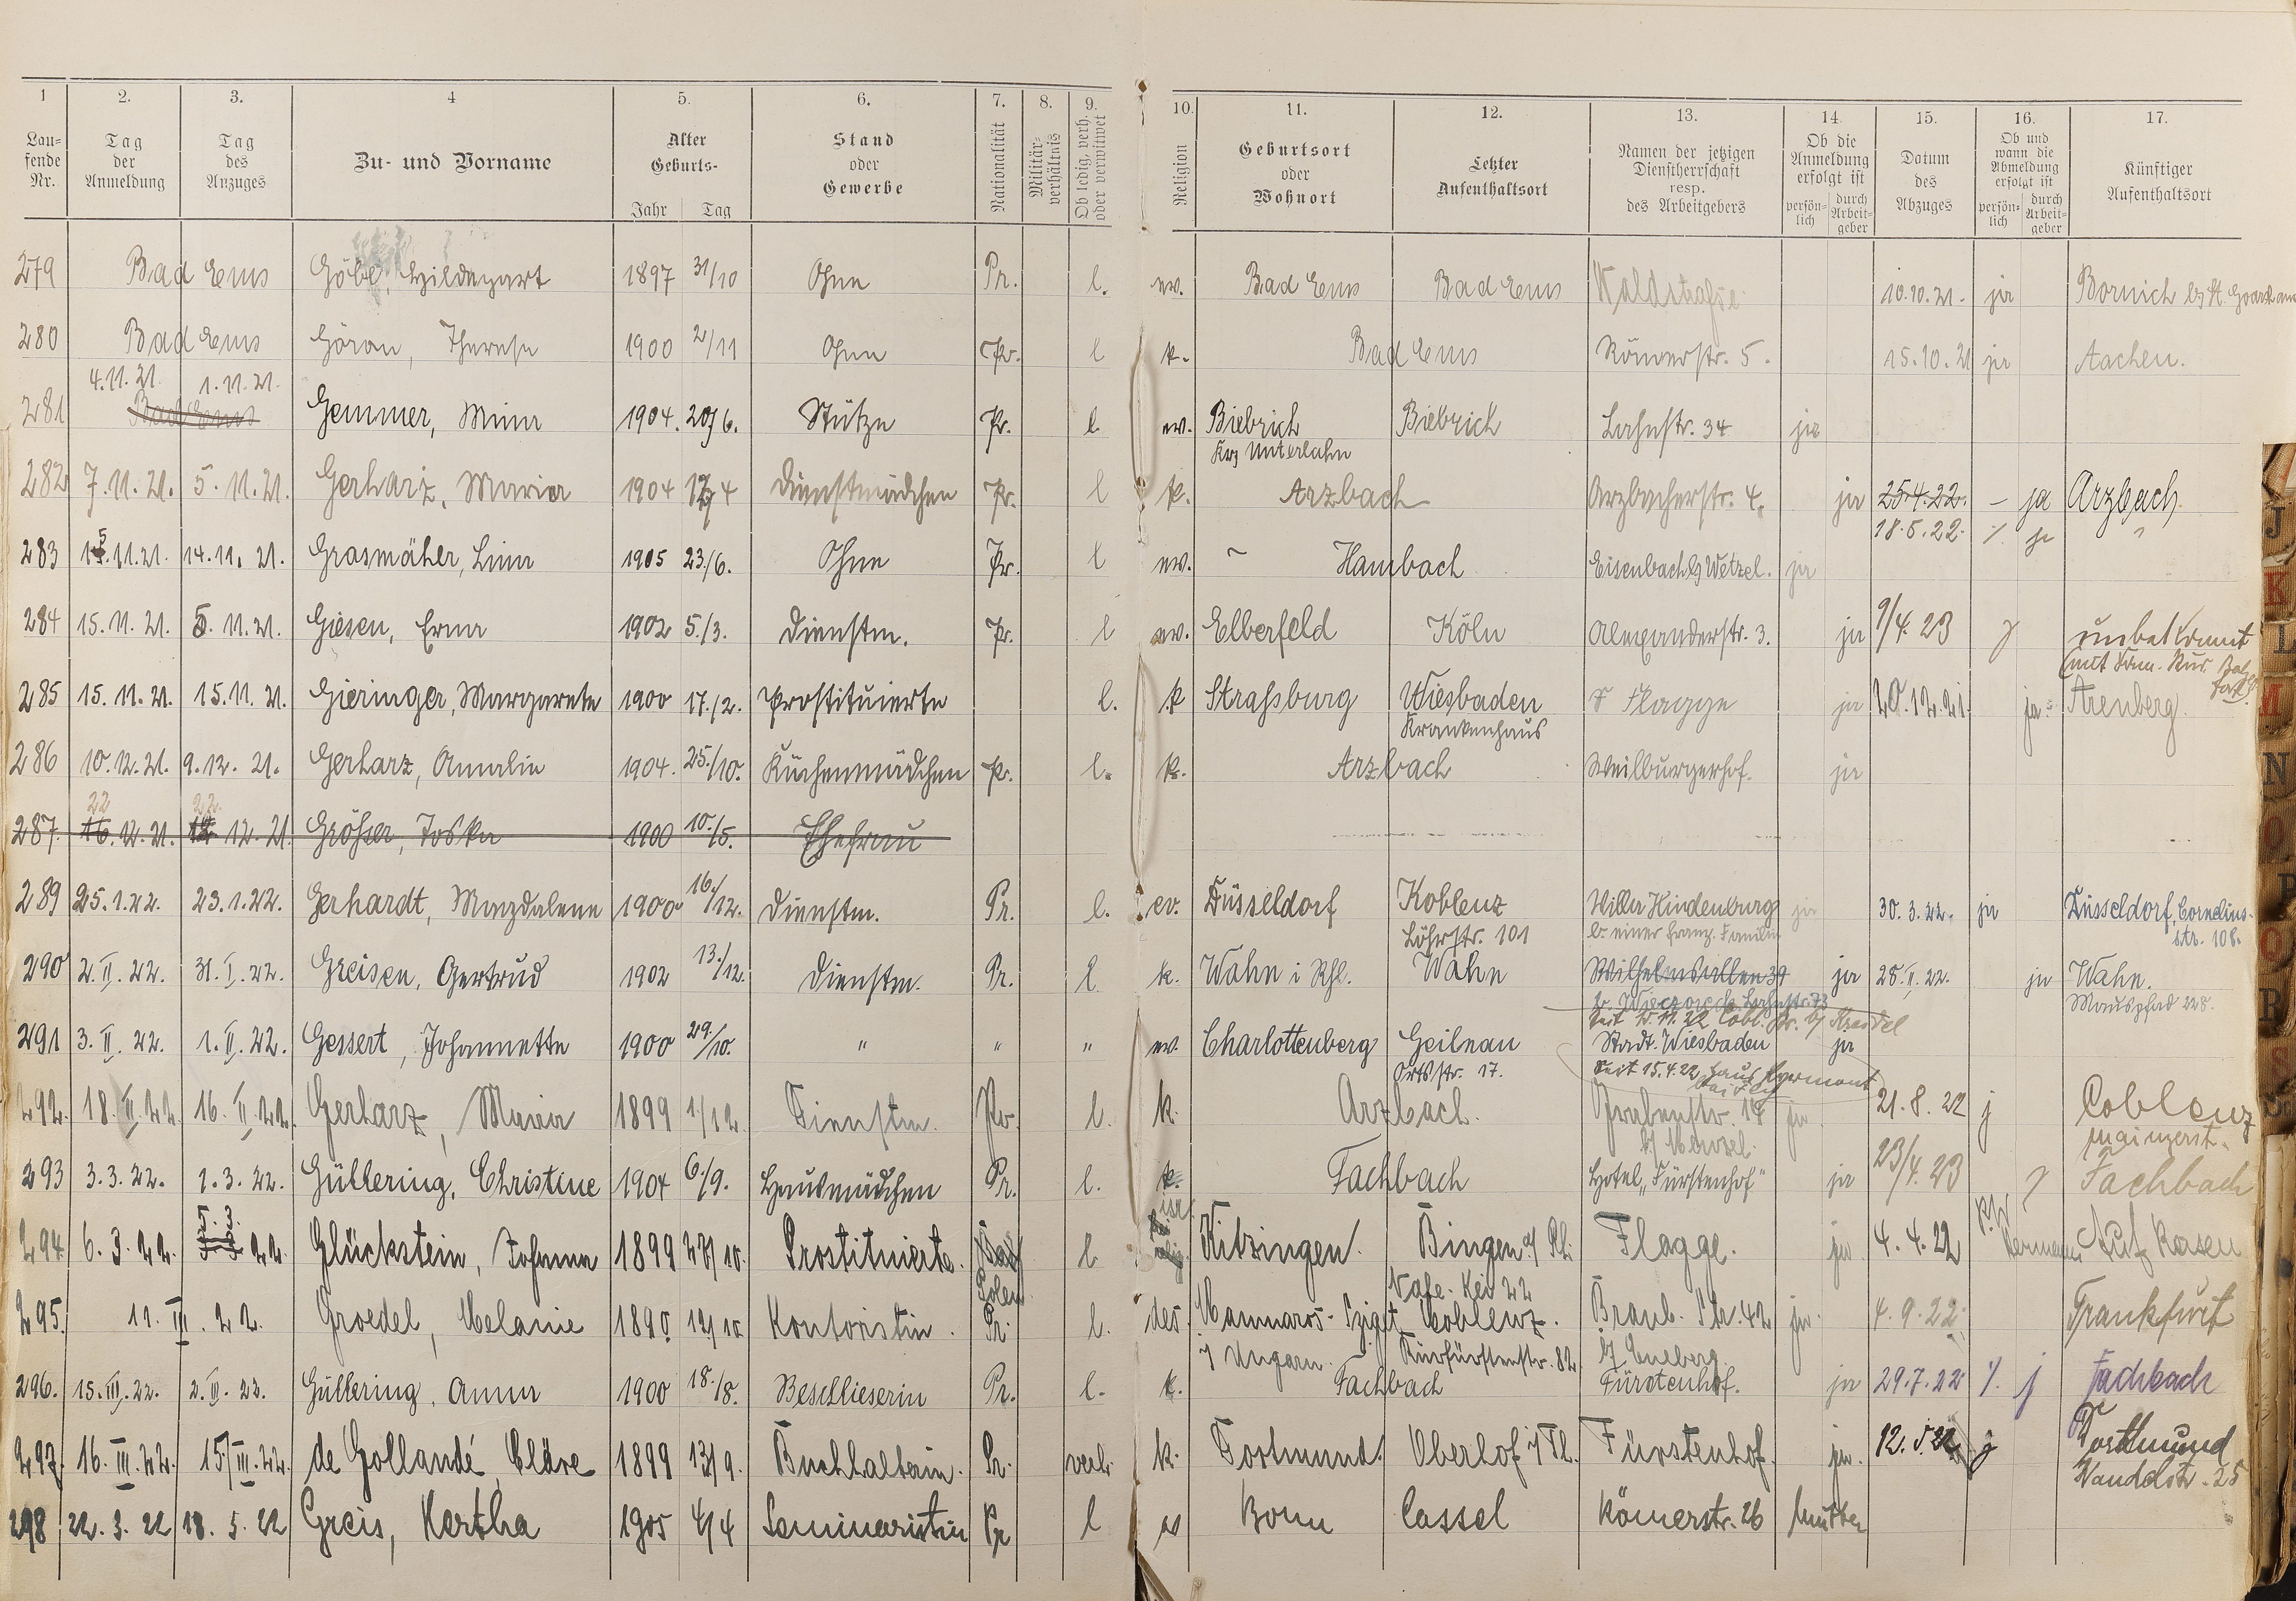 1 2. 3. 4 5. 6. 7. 8. 9. 10. 11. 12. 13. 14. 15. 16. 17.
Lau-
fende
Nr.
Tag
der
Anmeldung
Tag
des
Anzuges
Zu- und Vorname
Alter
Geburts-
Jahr Tag
Stand
oder
Gewerbe
Nationalität
Militär-
verhältnis
Ob ledig, verh.
oder verwitwet
Religion
Geburtsort
oder
Wohnort
Letzter
Aufenthaltsort
Namen der jetzigen
Dienstherrschaft
resp.
des Arbeitgebers
Ob die
Anmeldung
erfolgt ist
persön-
lich
durch
Arbeit-
geber
Datum
des
Abzuges
Ob und
wann die
Abmeldung
erfolgt ist
persön-
lich
durch
Arbeit-
geber
Künftiger
Aufenthaltsort
279 Bad Ems Göbel, Hildegart 1897 31/10 Ohne Pr. l. ev. Bad Ems Bad Ems Waldstraße 10.10.21. ja Bornich
280 Bad Ems Göron, Therese 1900 2/11 Ohne Pr. l k. Bad Ems Römerstr. 5. 15.10.21 ja Aachen.
4.11.21. 1.11.21.
281 Bad Ems Gemmer, Mina 1904. 20/6. Stütze Pr. l. ev. Biebrich Biebrich Lahnstr. 34 ja
Krs Unterlahn
282 7.11.21. 5.11.21. Gerharz, Maria 1904 12/4 Dienstmädchen Pr. l k. Arzbach Arzbacherstr. 4. ja 25.4.22. – ja Arzbach
18.5.22. "
283 15.11.21. 14.11.21. Grasmäher, Lina 1905 23./6. Ohne Pr. l ev. Hambach Eisenbach b/ Wetzel. ja
284 15.11.21. 5.11.21. Giesen, Erna 1902 5./3. Dienstm. Pr. l ev. Elberfeld Köln Alexanderstr. 3. ja 9/4. 23 unbekannt
285 15.11.21. 15.11.21. Gieringer, Margarete 1900 17./2. Prostituierte l. k Straßburg Wiesbaden Flagge ja 20.12.21. ja Arenberg.
Krankenhaus
286 10.12.21. 9.12.21. Gerharz, Amalie 1904. 25./10. Küchenmädchen Pr. l. k. Arzbach Weilburgerhof. ja
22 22.
287. 16.12.21. 12.21. Größer, Toska 1900 10./5. Ehefrau
289 25.1.22. 23.1.22. Gerhardt, Magdalene 1900 16./12. Dienstm. Pr. l. ev. Düsseldorf Koblenz Villa Hindenburg ja 30.3.22. ja Düsseldorf, Cornelius-
Löhrstr. 101 b. einer franz. Familie str. 108.
290 2.II.22. 31.I.22. Greisen, Gertrud 1902 13./12. Dienstm. Pr. l. k. Wahn i Rhl. Wahn Wilhelmsallee 39 ja 28.II.22. ja Wahn.
Mauspfad 228.
291 3.II.22. 1.II.22. Gessert, Johannette 1900 29./10. " " " ev. Charlottenberg Geilnau Stadt Wiesbaden ja
Ortsstr. 17. Seit 15.4.22 Haus Pyrmont
292. 18.II.22 16.II.22. Gerharz, Maria 1899 1./12. Dienstm. Pr. l. k. Arzbach. Grabenstr. 14 ja 21.8.22 j Coblenz
Mainzerst.
293 3.3.22. 1.3.22. Güllering, Christine 1904 6./9. Hausmädchen Pr. l. k. Fachbach Hotel „Fürstenhof" ja 23/4.23 Fachbach
5. 3. isr.
294 6.3.22. 22. Glückstein, Johanna 1899 27/10. Prostituierte. l. Kitzingen. Bingen a/ Rh. Flagge. ja. 4.4.22
Polen
295. 11.III.22. Groedel, Melanie 1890 12/10. Kontoristin. Pr. l. des. Marmaros-Sziget Coblenz. Braub. Str. 42 ja. 4.9.22. Frankfurt
i/ Ungarn. Kurfürstenstr. 82.
296. 15.III.22. 2.II.22. Güllering, Anna 1900 18./8. Beschlieserin Pr. l. k. Fachbach Fürstenhof. ja 29.7.22 j Fachbach
297. 16.III.22. 15/III.22. de Gollandé, Cläre 1899 13/9. Buchhalterin. Pr. verh. k. Dortmund Oberhof i/ Th. Fürstenhof. ja. 12.5.22 j Dortmund
298 22.3.22 18.5.22 Greis, Hertha 1905 4/4 Seminaristin Pr l es Bonn Cassel Römerstr. 26 Mutter
J
K
L
M
N
O
P
Q
R
S